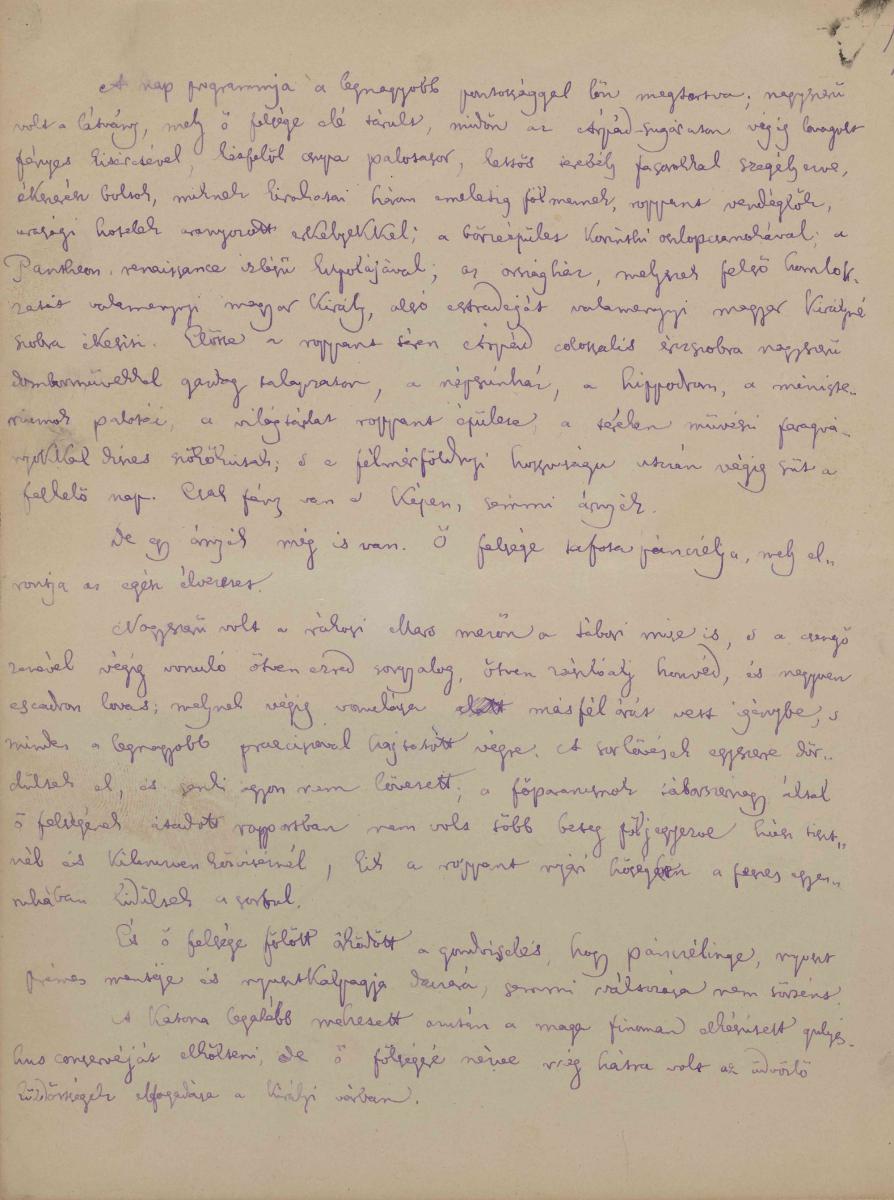 A nap programmja a legnagyobb pontossággal lőn megtartva; nagyszerű
volt a látvány, mely ő felsége elé tárult, midőn az Árpád-sugáruton végig lovagolt
fényes kiséretével, kétfelől csupa palotasor, kettős szegélyezve,
ékszerész boltok, miknek kirakatai három emeletig fölmennek, roppant vendéglők,
urasági hotelek aranyozott erkélyekkel; a börzeépület korinthi oszlopcsarnokával; a
Pantheon renaissance izlésű kupolájával; az országház, melynek felső homlok-
zatát valamennyi magyar király, alsó estradeját valamennyi magyar királyné
szobra ékesiti. Előtte a roppant téren Árpád colossalis érczszobra nagyszerű
domborművekkel gazdag talapzaton, a népszinház, a hippodrom, a ministe-
riumok palotái, a világtárlat roppant épülete, a téreken művészi faragvá-
nyokkal diszes szökőkutak; s a félmérföldnyi hosszuságu utczán végig süt a
felkelő nap. Csak fény van a képen, semmi árnyék.
De egy árnyék még is van. Ő felsége tafota pánczélja, mely el-
rontja az egész élvezetet.
Nagyszerű volt a rákosi Mars mezőn a tábori mise is, s a csengő
zenével végig vonuló ötven ezred gyalog, ötven zászlóalj honvéd, és negyven
escadron lovas; melynek végig vonulása másfél órát vett igénybe, s
minden a legnagyobb praecisioval hajtatott végre. A sorlövések egyszerre dör-
dültek el, és senki agyon nem lövetett; a főparancsnok táborszernagy által
ő felségének átadott rapportban nem volt több beteg följegyezve húsz tiszt-
nél és kilenczven közvitéznél, kik a roppant nyári hőségben a feszes egyen-
ruhában kidültek a sorbul.
És ő felsége fölött őködött a gondviselés, hogy pánczélinge, nyuszt
prémes mentéje és nyusztkalpagja daczára, semmi változása nem történt.
A katona legalább mehetett azután a maga finoman elkészitett gulyás-
hus conservéját elkölteni, de ő fölségére nézve még hátra volt az üdvözlő
küldöttségek elfogadása a királyi várban.